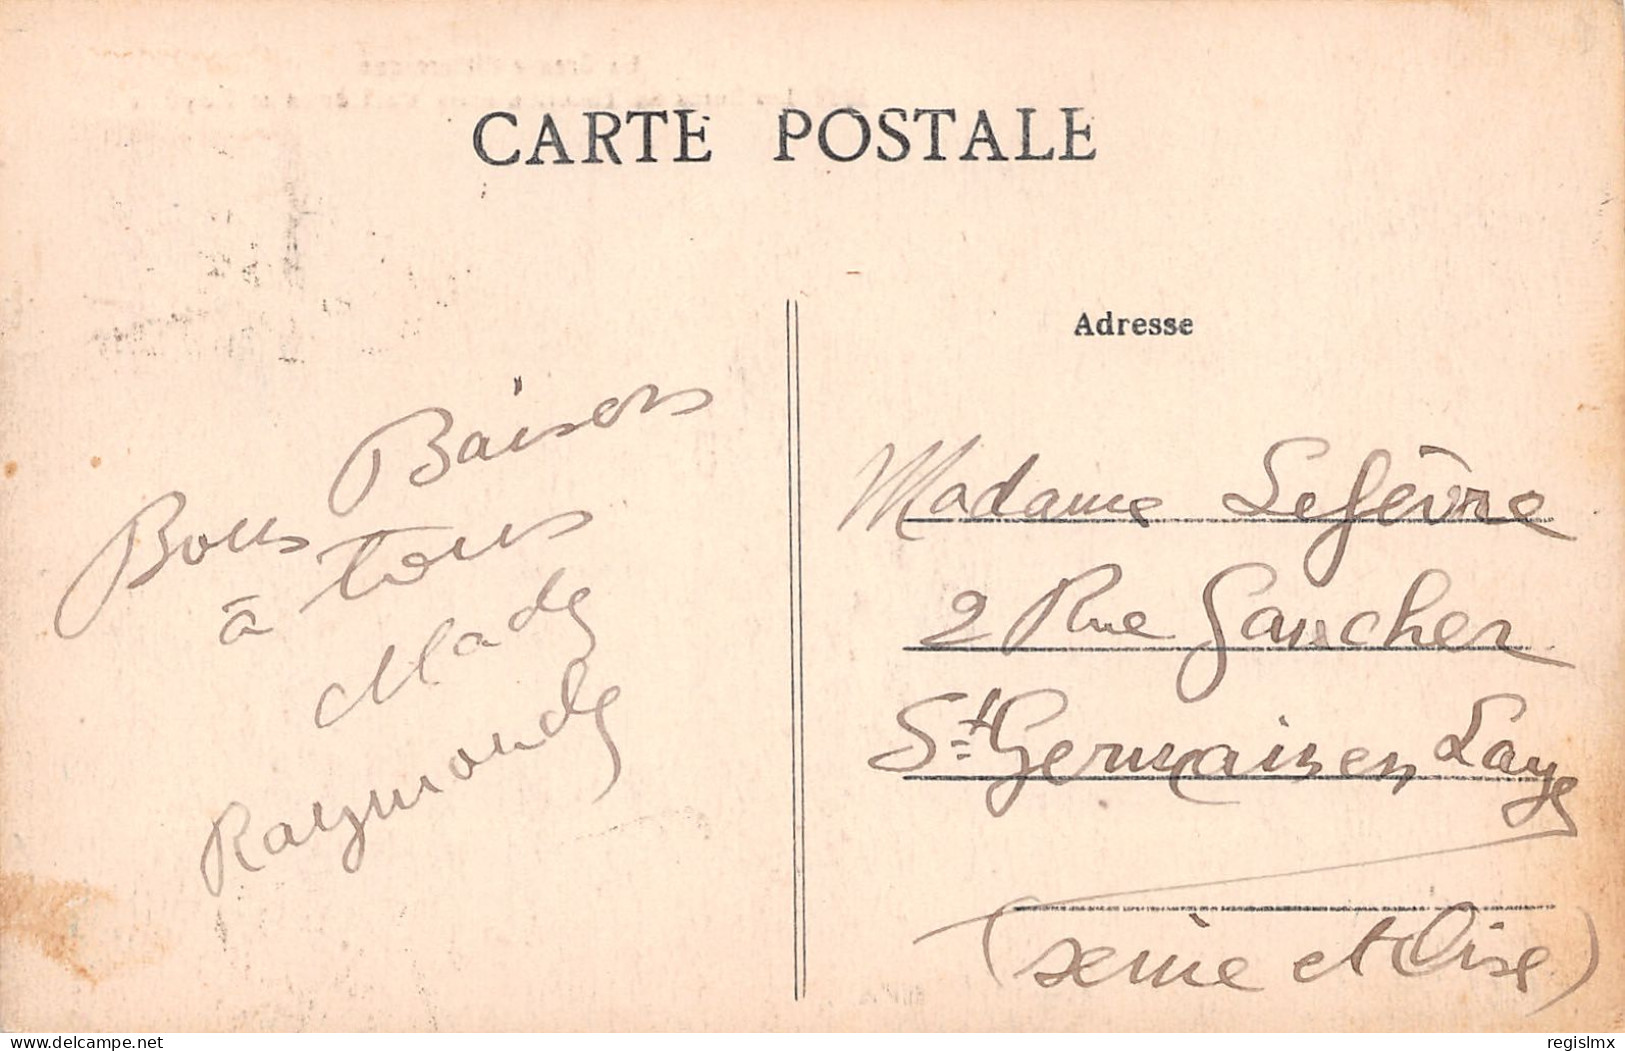 CARTE POSTALE
Bons Baisers
à tous
Mady
Raymonde
Adresse
Madame Lefèvre
2 Rue Gaucher
St Germain en Laye
(Seine et Oise)
delcampe.net
regislmx